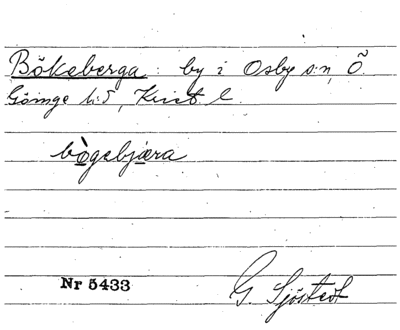 Bökeberga : by i Osby s:n, Ö.
Göinge h:d, Krist. l.
bògebjæra
Nr 5433
G. Sjöstedt